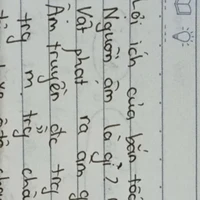 Lợi ích của bản tốc
Nguồn âm là gì?
Vật phát ra âm g
Âm truyền đc trg
trg m. trg chấ